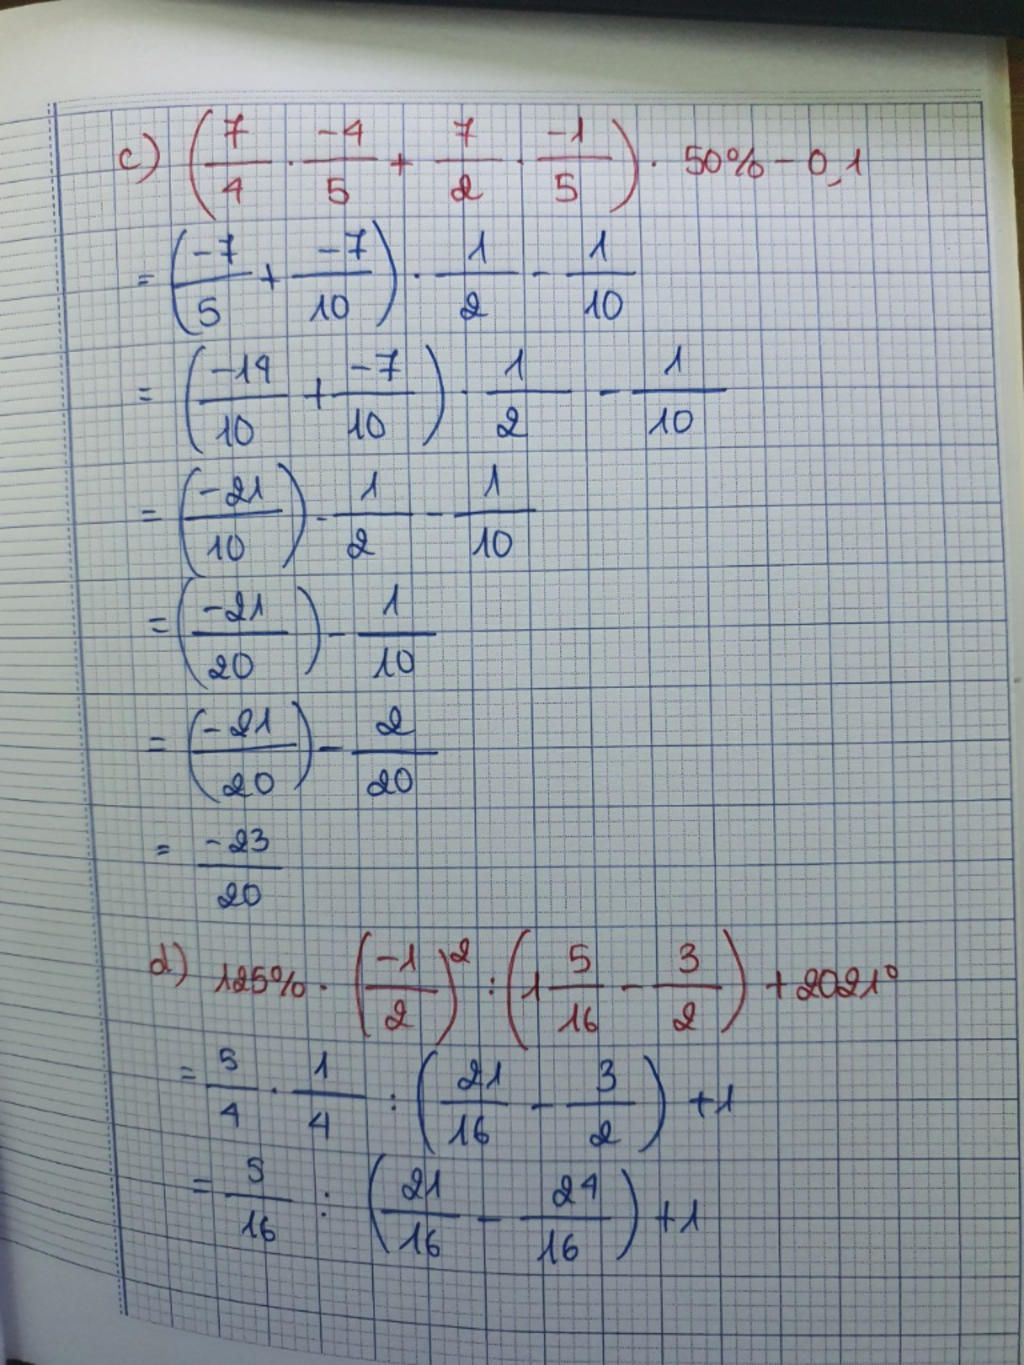 c) (7/4 · -4/5 + 7/2 · -1/5) · 50% - 0,1
= (-7/5 + -7/10) · 1/2 - 1/10
= (-14/10 + -7/10) · 1/2 - 1/10
= (-21/10) · 1/2 - 1/10
= (-21/20) - 1/10
= (-21/20) - 2/20
= -23/20
d) 125% · (-1/2)² : (1 5/16 - 3/2) + 2021⁰
= 5/4 · 1/4 : (21/16 - 3/2) + 1
= 5/16 : (21/16 - 24/16) + 1